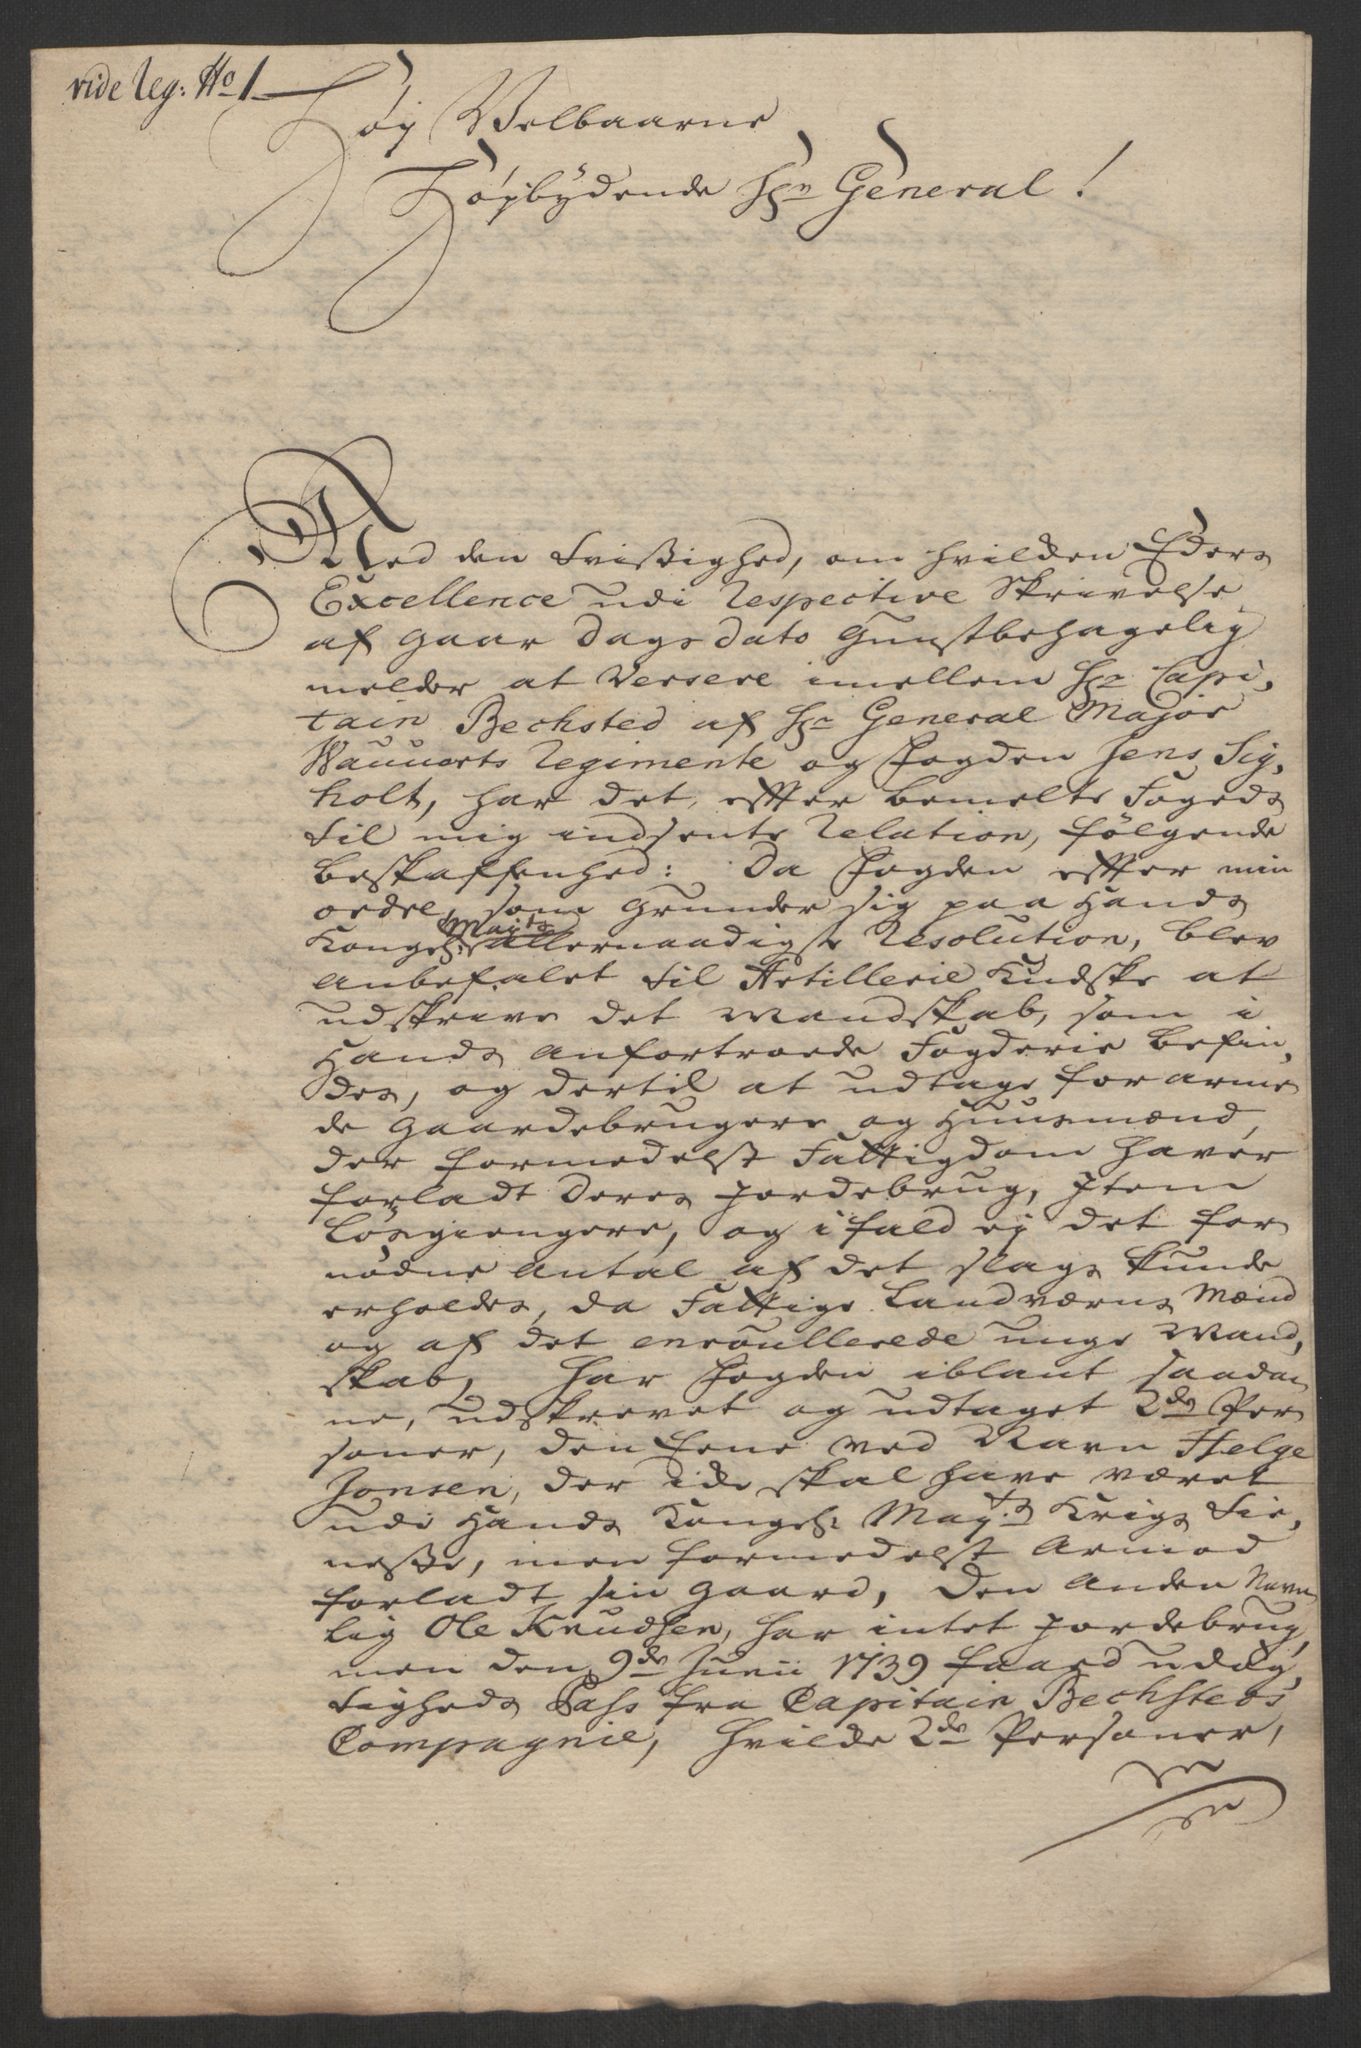 vide Reg: No 1
Høy Velbaarne
Høybydende Hrr General!
Med den Tvistighed, om hvilken Eders
Excellence udi Respective Skrivelse
af Gaar Dags Dato Gunstbehagelig
melder at Versere imellem Hr Capi-
tain Bechsted af Hr General Major
Rauverts Regimente og Fogden Jens Sig-
holt, har det, effter bemelte Fogeds
til mig indsente Relation, følgende
Beskaffenhed: Da Fogden effter min
ordre, som grunder sig paa Hands
Kongel: Mayts allernaadigste Resolution, blev
anbefalet til Artillerie Kudske at
udskrive det Mandskab, som i
Hands anfortroede Fogderie befin-
des, og dertil at udtage forarme-
de Gaardebrugere og Huusmænd,
der formedelst Fattigdom haver
forladt deres Jordebrug, Item
Løsgiengere, og i fald ej det for-
nødne Antal af det slags kunde
erholdes, da Fattige Landværns Mænd
og af det enroullerede unge Mand-
skab, Har Fogden iblant saadan-
ne, udskrevet og udtaget 2de Per-
soner, den Eene ved Navn Helge
Jonsen, der icke skal have været
udi Hands Kongel: Mayts Krigs Tie-
neste, men formedelst Armod
forladt sin Gaard, Den Anden Navn-
lig Ole Knudsen, har intet Jordebrug,
men den 9de Junii 1739 faaed udyg-
tigheds Pass fra Capitain Bechsteds
Compagnie, Hvilke 2de Personer,